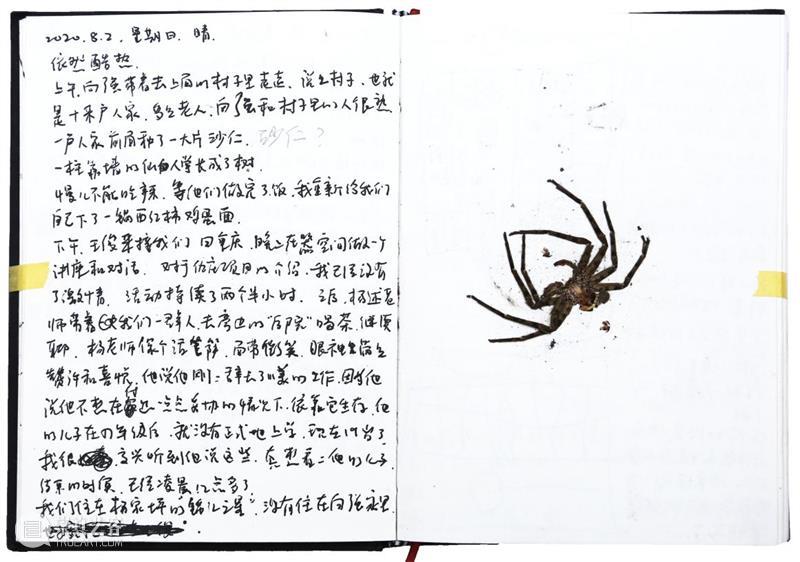 2020.8.2. 星期日. 晴.
依然酷热.
上午, 向强带着去上面的村子里走走, 说是村子, 也就
是十来户人家, 多是老人, 向强和村子里的人很熟
一户人家前面种了一大片砂仁. 砂仁?
一柱靠墙的仙人掌长成了树.
慢儿不能吃辣, 等他们做完了饭, 我重新给我们
自己下了一锅西红柿鸡蛋面.
下午, 王俊来接我们回重庆, 晚上在器空间做一个
讲座和对话. 对于仿应项目的介绍, 我已经没有
了激情. 活动持续了两个半小时. 之后, 杨述老
师带着我们一群人去旁边的"后院"喝茶, 继续
聊. 杨老师像个活菩萨, 面带微笑, 眼神里
赞许和喜悦, 他说他刚辞去了川美的工作, 因为他
说他不想在 的情况下, 依靠它生存, 他
的儿子在四年级后, 就没有正式地上学, 现在19岁了
我很高兴听到他说这些, 真想看看他的儿子
结束的时候, 已经凌晨12点多了
我们住在杨家坪的"锦江之星", 没有住在向强家里